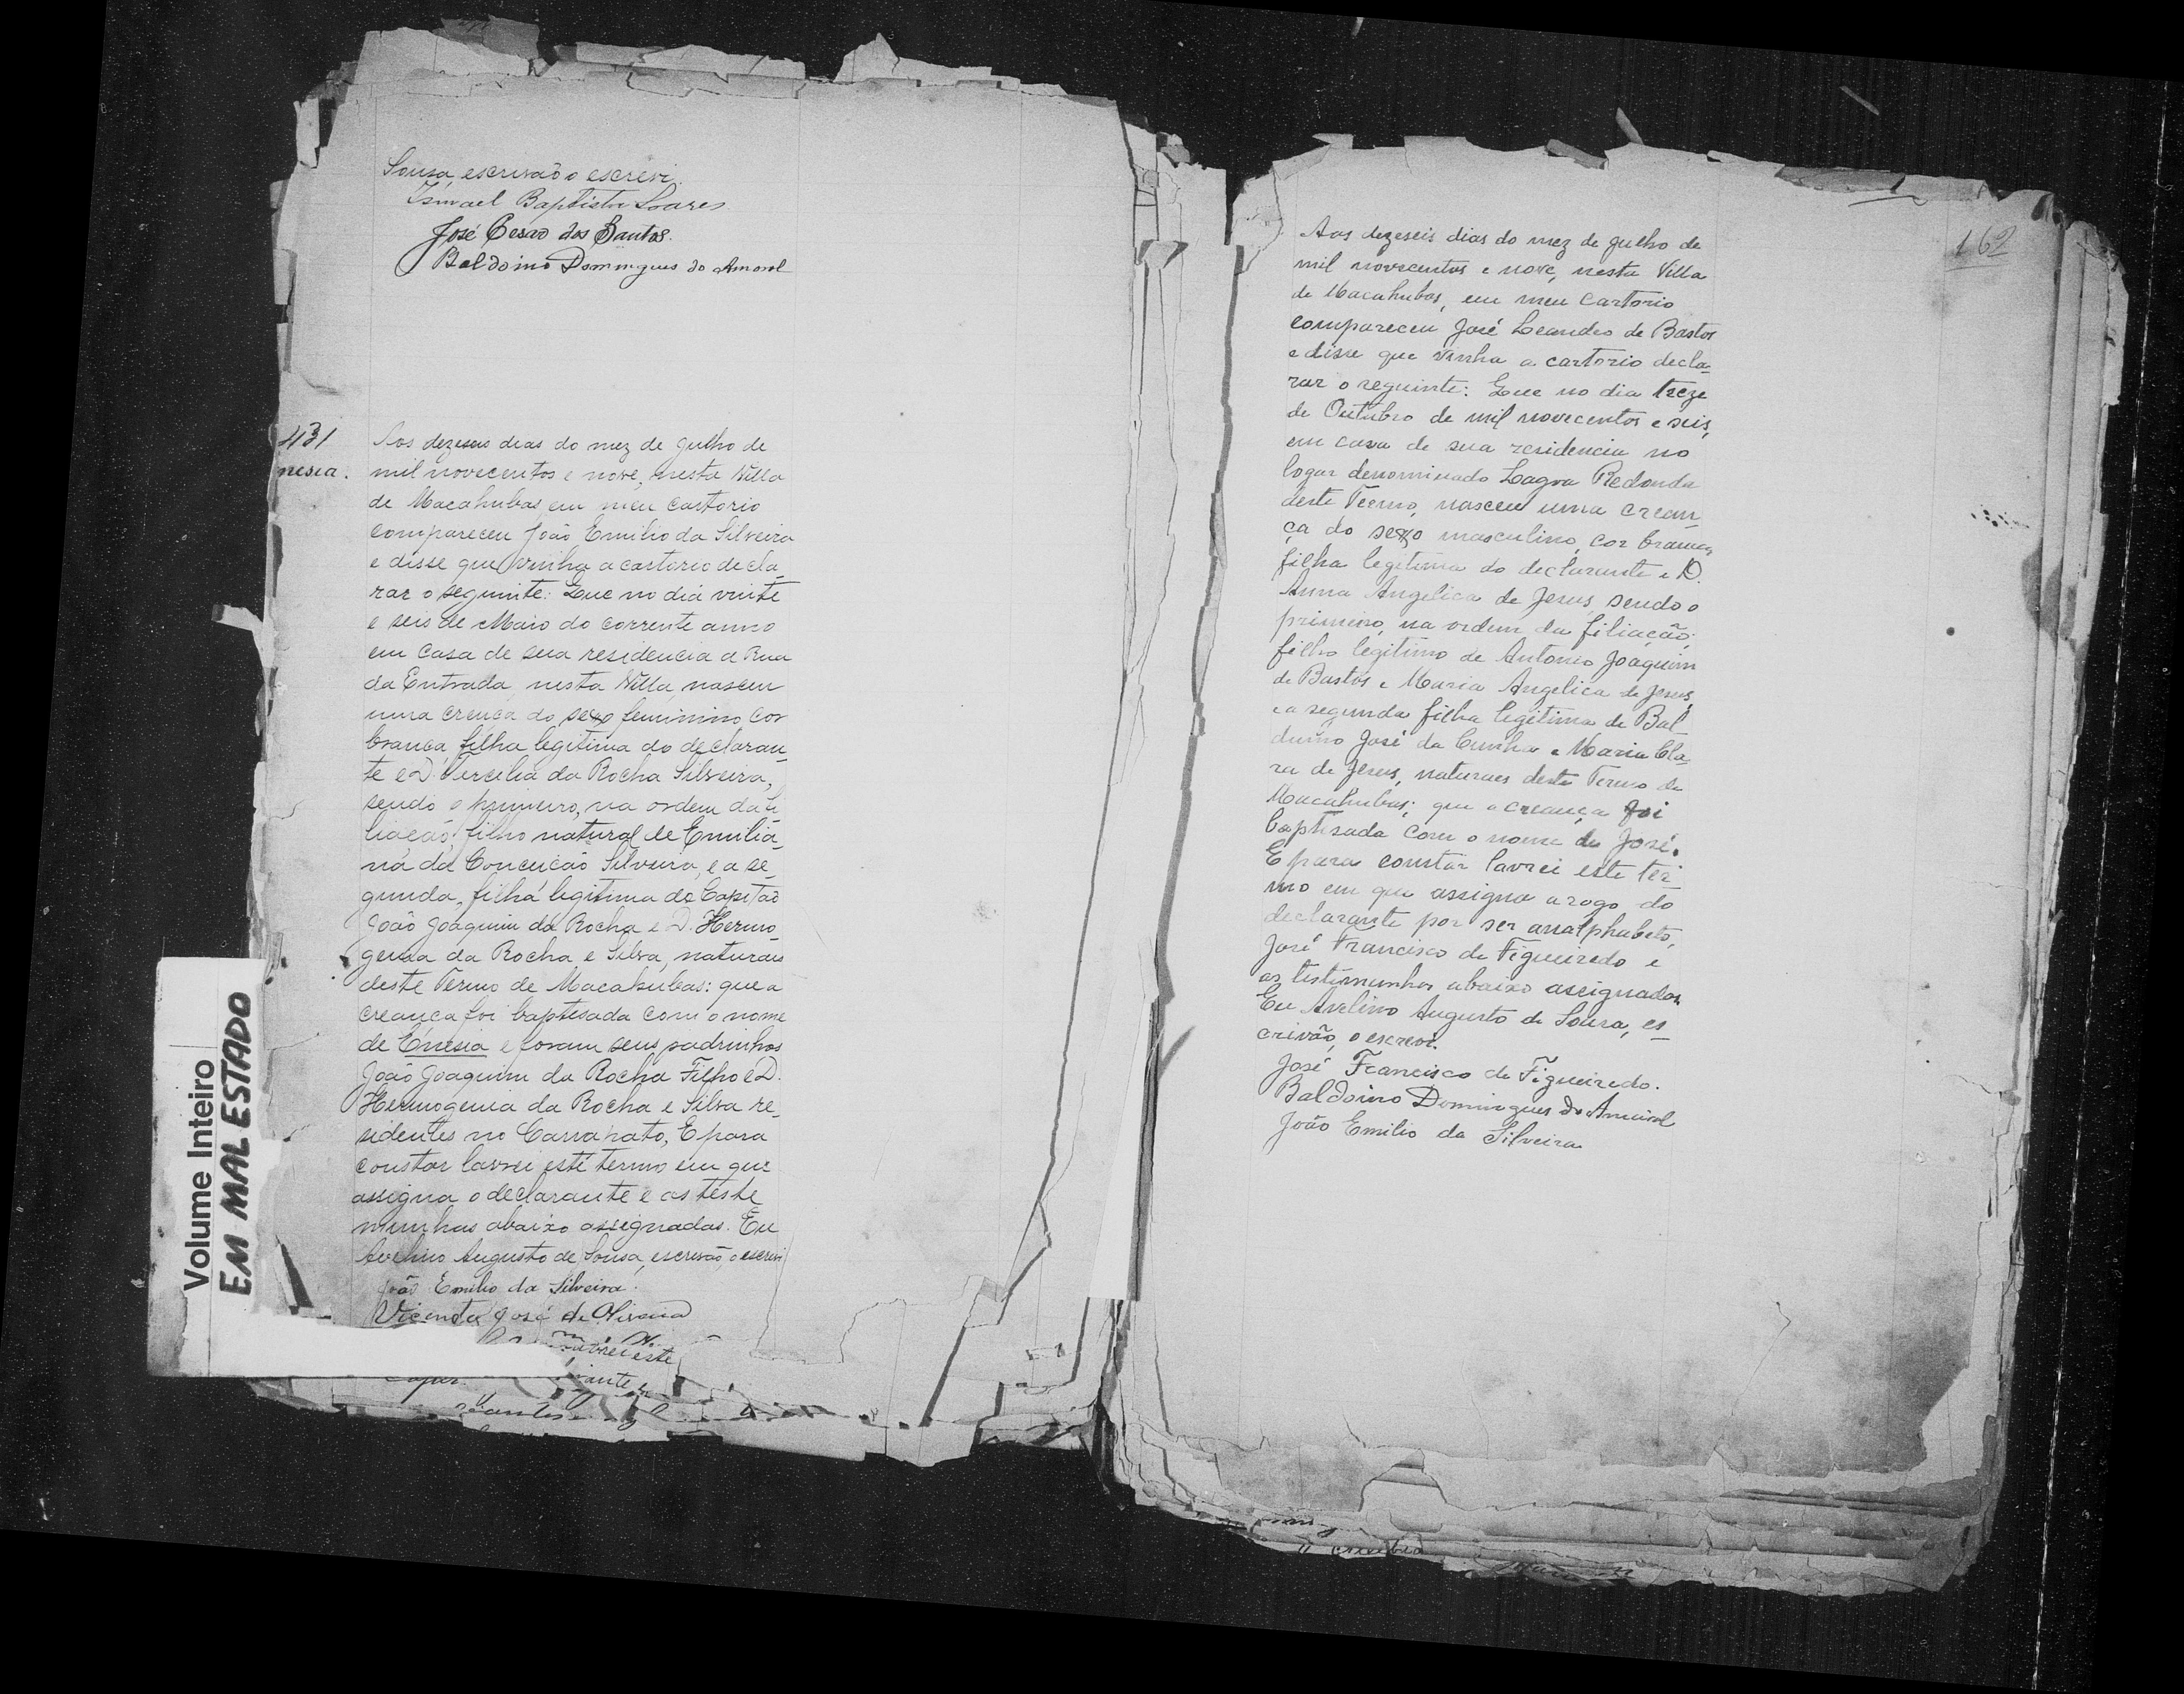 Sousa, escrivão o escrevi.
Ismael Baptista Soares
José Cesar dos Santos.
Baldoino Domingues do Amaral
431
nesia.
Aos dezeseis dias do mez de Julho de
mil novecentos e nove, nesta Villa
de Macahubas em meu cartorio
compareceu João Emilio da Silveira
e disse que vinha a cartorio decla-
rar o seguinte: Que no dia vinte
e seis de Maio do corrente anno
em casa de sua residencia a Rua
da Entrada, nesta Villa, nasceu
uma creuça do sexo feminino, cor
branca, filha legitima do declaran-
te e D. Tercilia da Rocha Silveira,
sendo o primeiro, na ordem da fi-
liação, filho natural de Emilia-
na da Conceição Silveira, e a se-
gunda, filha legitima do Capitão
João Joaquim da Rocha e D. Hermo-
genia da Rocha e Silva, naturaes
deste Termo de Macahubas: que a
creança foi baptisada com o nome
de Enesia e foram seus padrinhos
João Joaquim da Rocha Filho e D.
Hermogenia da Rocha e Silva re-
sidentes no Carrapato, E para
constar lavrei este termo em que
assigna o declarante e as teste
munhas abaixo assignadas. Eu
Avelino Augusto de Sousa, escrivão, o escrevi
João Emilio da Silveira.
Vicente José de Oliveira
lavrei este
Volume Inteiro
EM MAL ESTADO
169
Aos dezeseis dias do mez de Julho de
mil novecentos e nove, nesta Villa
de Macahubas, em meu cartorio
compareceu José Leandro de Bastos
e disse que vinha a cartorio decla-
rar o seguinte: Que no dia treze
de Outubro de mil novecentos e seis,
em casa de sua residencia no
logar denominado Lagoa Redonda
deste Termo, nasceu uma crean-
ça do sexo masculino, cor branca,
filha legitima do declarante e D.
Anna Angelica de Jesus, sendo o
primeiro, na ordem da filiação;
filho legitimo de Antonio Joaquim
de Bastos e Maria Angelica de Jesus,
e a segunda filha legitima de Bal
duino José da Cunha e Maria Cla-
ra de Jesus, naturaes deste Termo de
Macahubas; que a creança foi
baptisada com o nome de José.
E para constar lavrei este ter-
mo em que assigna a rogo do
declarante por ser analphabeto,
José Francisco de Figueiredo e
as testemunhas abaixo assignadas
Eu Avelino Augusto de Sousa, es-
crivão, o escrevi.
José Francisco de Figueiredo.
Baldoino Domingues do Amaral
João Emilio da Silveira